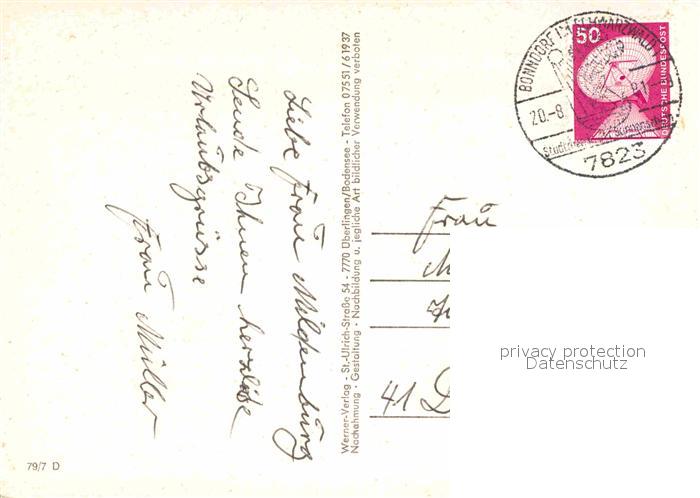 Liebe Frau Mildenburg
Sende Ihnen herzliche
Urlaubsgrüsse
Frau Müller
Werner-Verlag - St.-Ulrich-Straße 54 - 7770 Überlingen/Bodensee - Telefon 07551/61937
Nachahmung - Gestaltung - Nachbildung u. jegliche Art bildlicher Verwendung verboten
BONNDORF I. SCHWARZWALD
20.-8.
7823
50
DEUTSCHE BUNDESPOST
Frau
M
41 D
privacy protection
Datenschutz
79/7 D